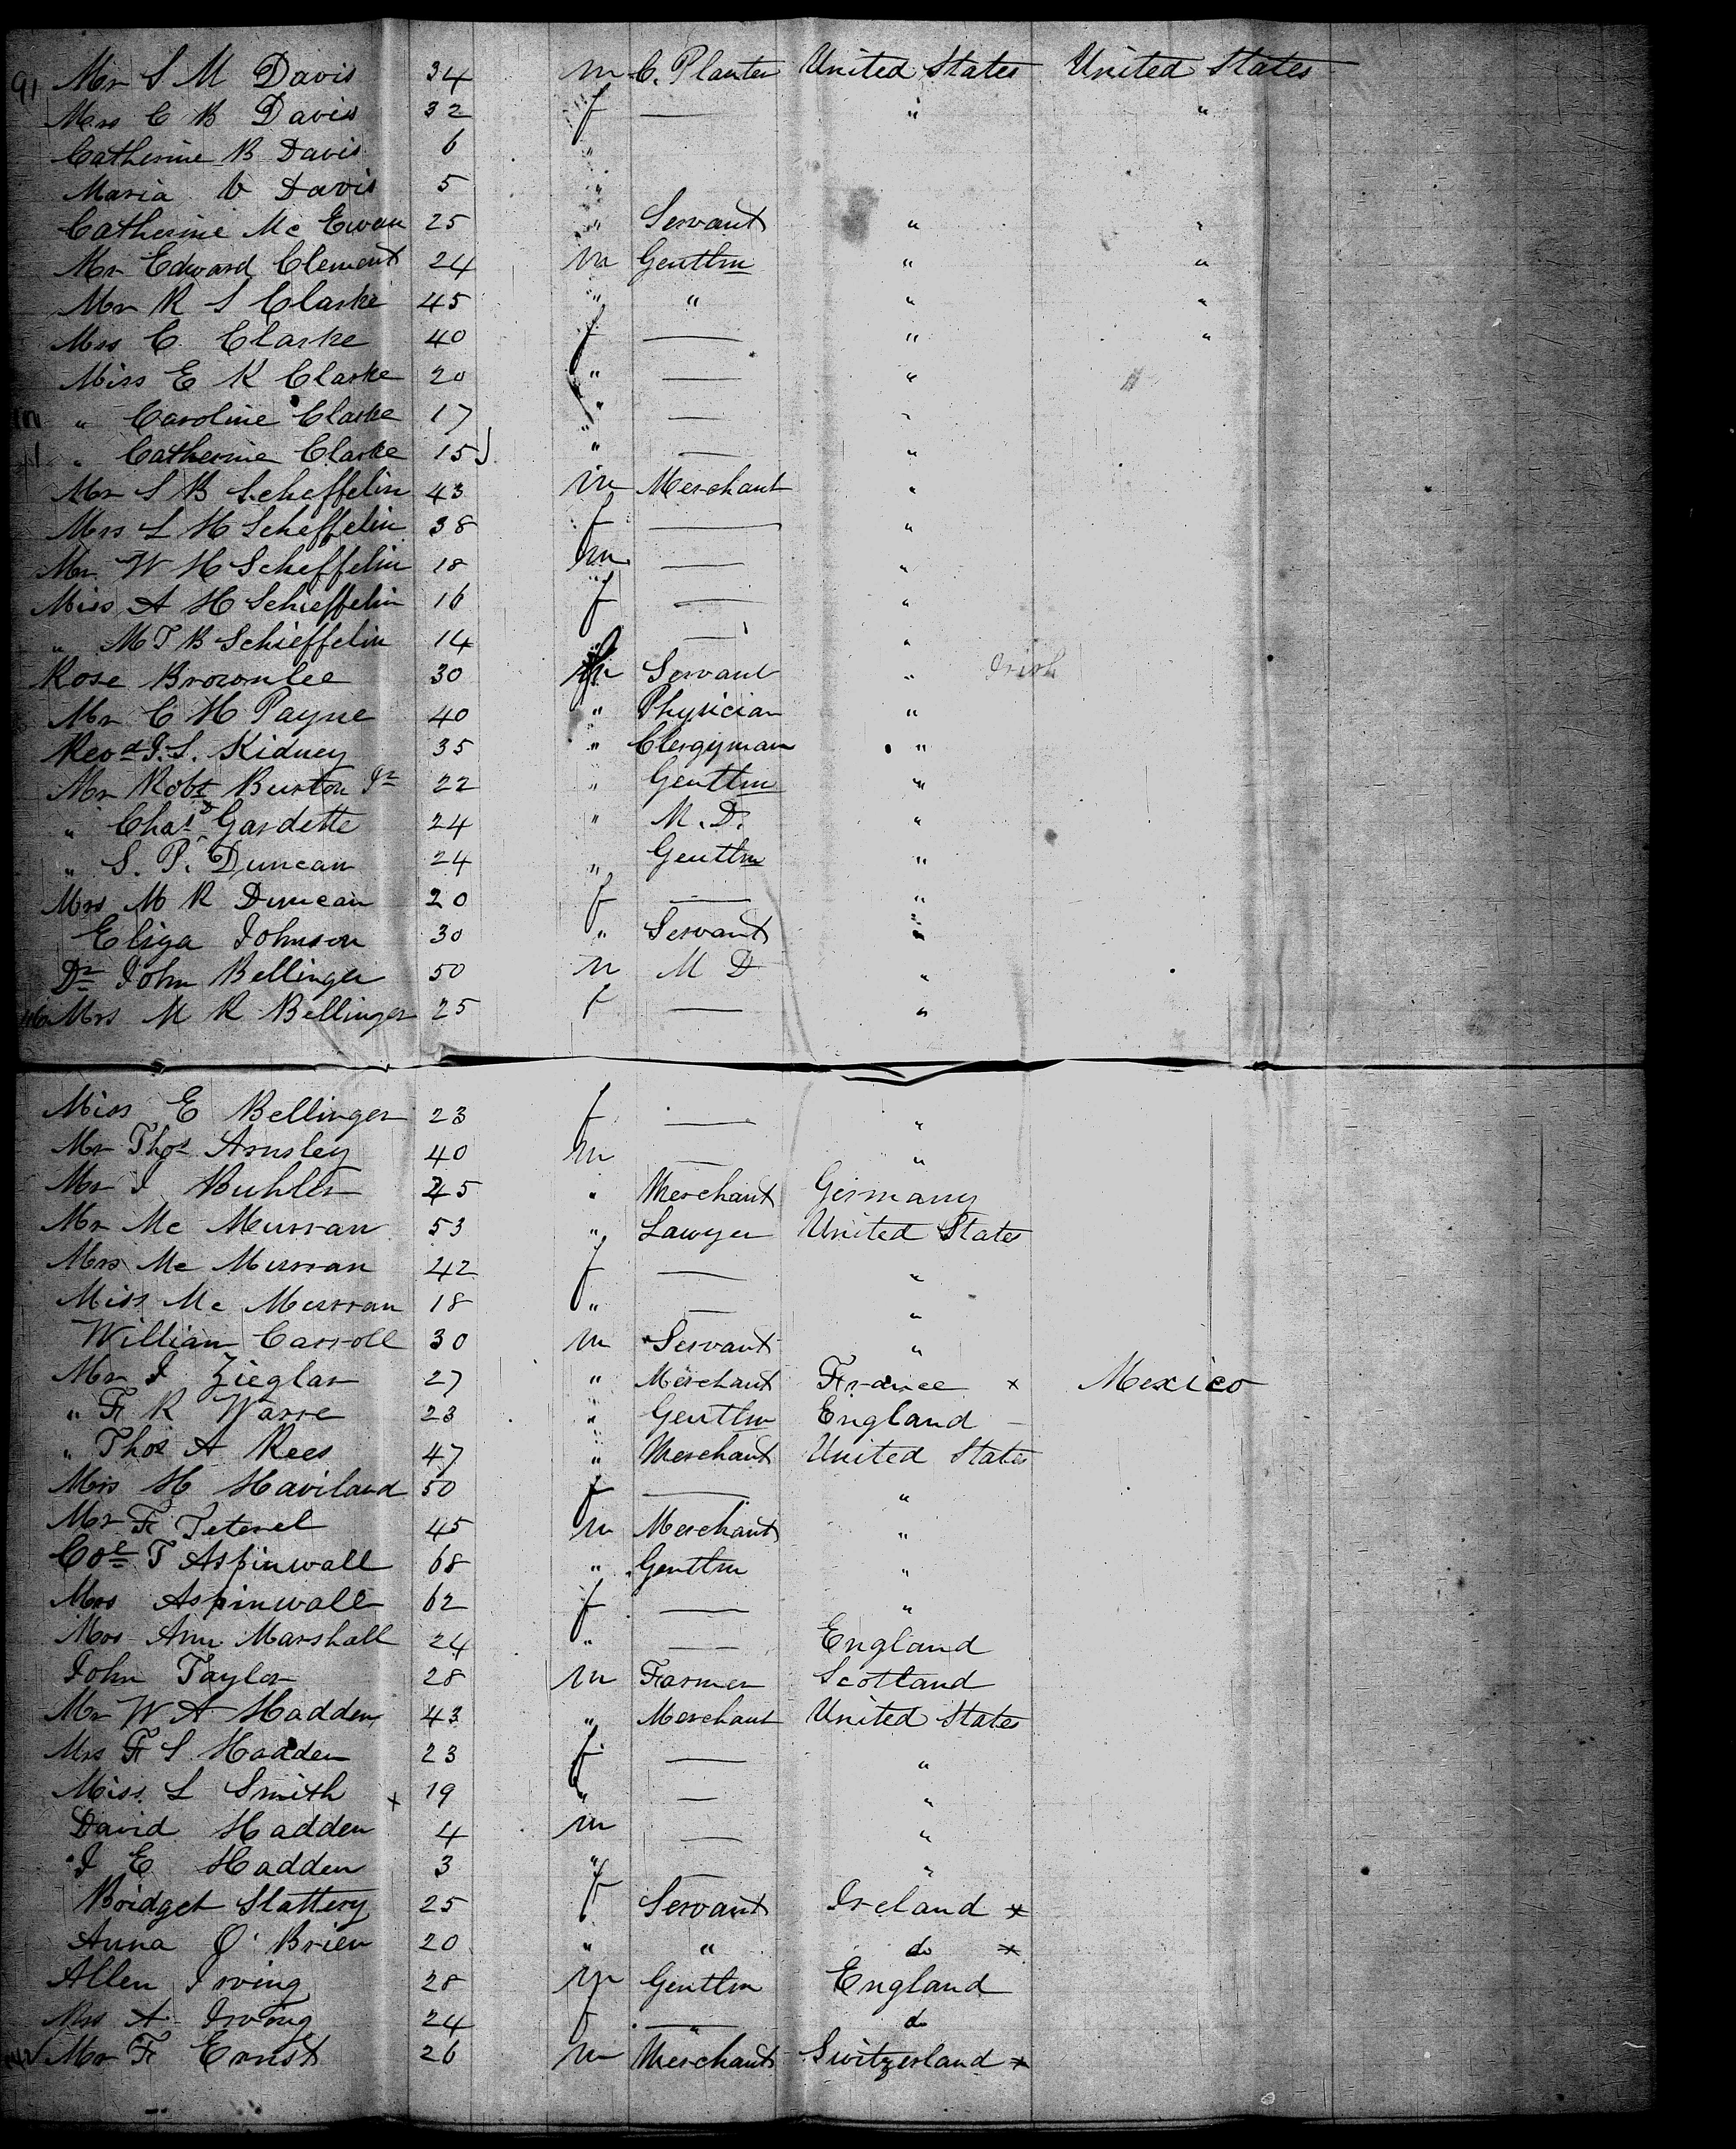 91 Mr S M Davis 34 m C. Planter United States United States
Mrs C B Davis 32 f — " "
Catherine B Davis 6 "
Maria V Davis 5 "
Catherine Mc Ewan 25 " Servant " "
Mr Edward Clement 24 m Gentlm " "
Mr R S Clarke 45 " " " "
Mrs C Clarke 40 f — " "
Miss E K Clarke 20 " — " "
" Caroline Clarke 17 " — "
" Catherine Clarke 15 " — "
Mr S B Scheffelin 43 m Merchant "
Mrs L H Scheffelin 38 f — "
Mr W H Scheffelin 18 m — "
Miss A H Schieffelin 16 f — "
" M T B Schieffelin 14 " — "
Rose Brownlee 30 Servant " Irish
Mr C H Payne 40 " Physician "
Revd J. S. Kidney 35 " Clergyman "
Mr Robt Burton Jr 22 " Gentlm "
" Chas Gardette 24 " M.D. "
" S. P. Duncan 24 " Gentlm "
Mrs M R Duncan 20 f — "
Eliza Johnson 30 " Servant "
Dr John Bellinger 50 m M D "
Mrs M R Bellinger 25 f — "
Miss E Bellinger 23 f — "
Mr Thos Arnsley 40 m — "
Mr J Buhler 45 " Merchant Germany
Mr Mc Murran 53 " Lawyer United States
Mrs Mc Murran 42 f — "
Miss Mc Murran 18 " — "
William Carroll 30 m Servant "
Mr J Zieglar 27 " Merchant France x Mexico
" F R Warre 23 " Gentlm England –
" Thos A Rees 47 " Merchant United States
Mrs H Haviland 50 f — "
Mr F Teterel 45 m Merchant "
Col T Aspinwall 68 " Gentlm "
Mrs Aspinwall 62 f — "
Mrs Ann Marshall 24 " — England
John Taylor 28 m Farmer Scotland
Mr W A Hadden 43 " Merchant United States
Mrs F S Hadden 23 f — "
Miss L Smith x 19 " — "
David Hadden 4 m — "
J E Hadden 3 " — "
Bridget Slattery 25 f Servant Ireland x
Anna O'Brien 20 " " do x
Allen Irving 28 m Gentlm England
Mrs A Irving 24 f — do
Mr F Ernst 26 m Merchant Switzerland x